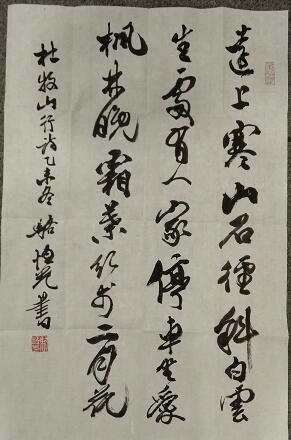 遠上寒山石徑斜白雲
生處有人家停車坐愛
楓林晚霜葉紅於二月花
杜牧山行詩乙未冬駱恒光書